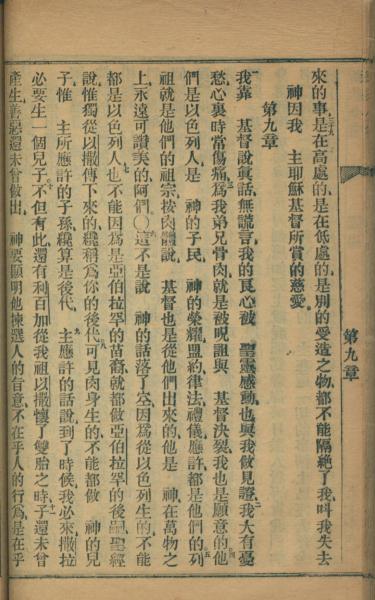 來的事、是在高處的、是在低處的、是別的愛造之物、都不能隔絶了我、叫我失去
神因我　主耶穌基督所賞的慈愛、
第九章
我靠　基督說眞話、無謊言、我的良心被　聖靈感動、也與我做見證、我大有憂
愁、心裏時常傷痛、爲我弟兄骨肉、就是被呪詛與　基督決裂、我也是願意的、他
們是以色列人、是　神的子民、　神的榮耀、盟約、律法、禮儀、應許、都是他們的、列
祖就是他們的祖宗、按肉體說、　基督也是從他們出來的、他是　神在萬物之
上、永遠可讚美的、阿們〇這不是說　神的話落了空、因爲從以色列生的、不能
都是以色列人、也不能因爲是亞伯拉罕的苗裔、就都做亞伯拉罕的後嗣、聖經
說、惟獨從以撒傳下來的、纔稱爲你的後代、可見肉身生的、不能都做　神的兒
子、惟　主所應許的子孫、纔算是後代、　主應許的話說、到了時候、我必來、撒拉
必要生一個兒子、不但有此、還有利百加、從我祖以撒懷了雙胎之時、子還未曾
產生、善惡還未曾做出、　神要顯明他揀選人的旨意、不在乎人的行爲、是在乎
第九章